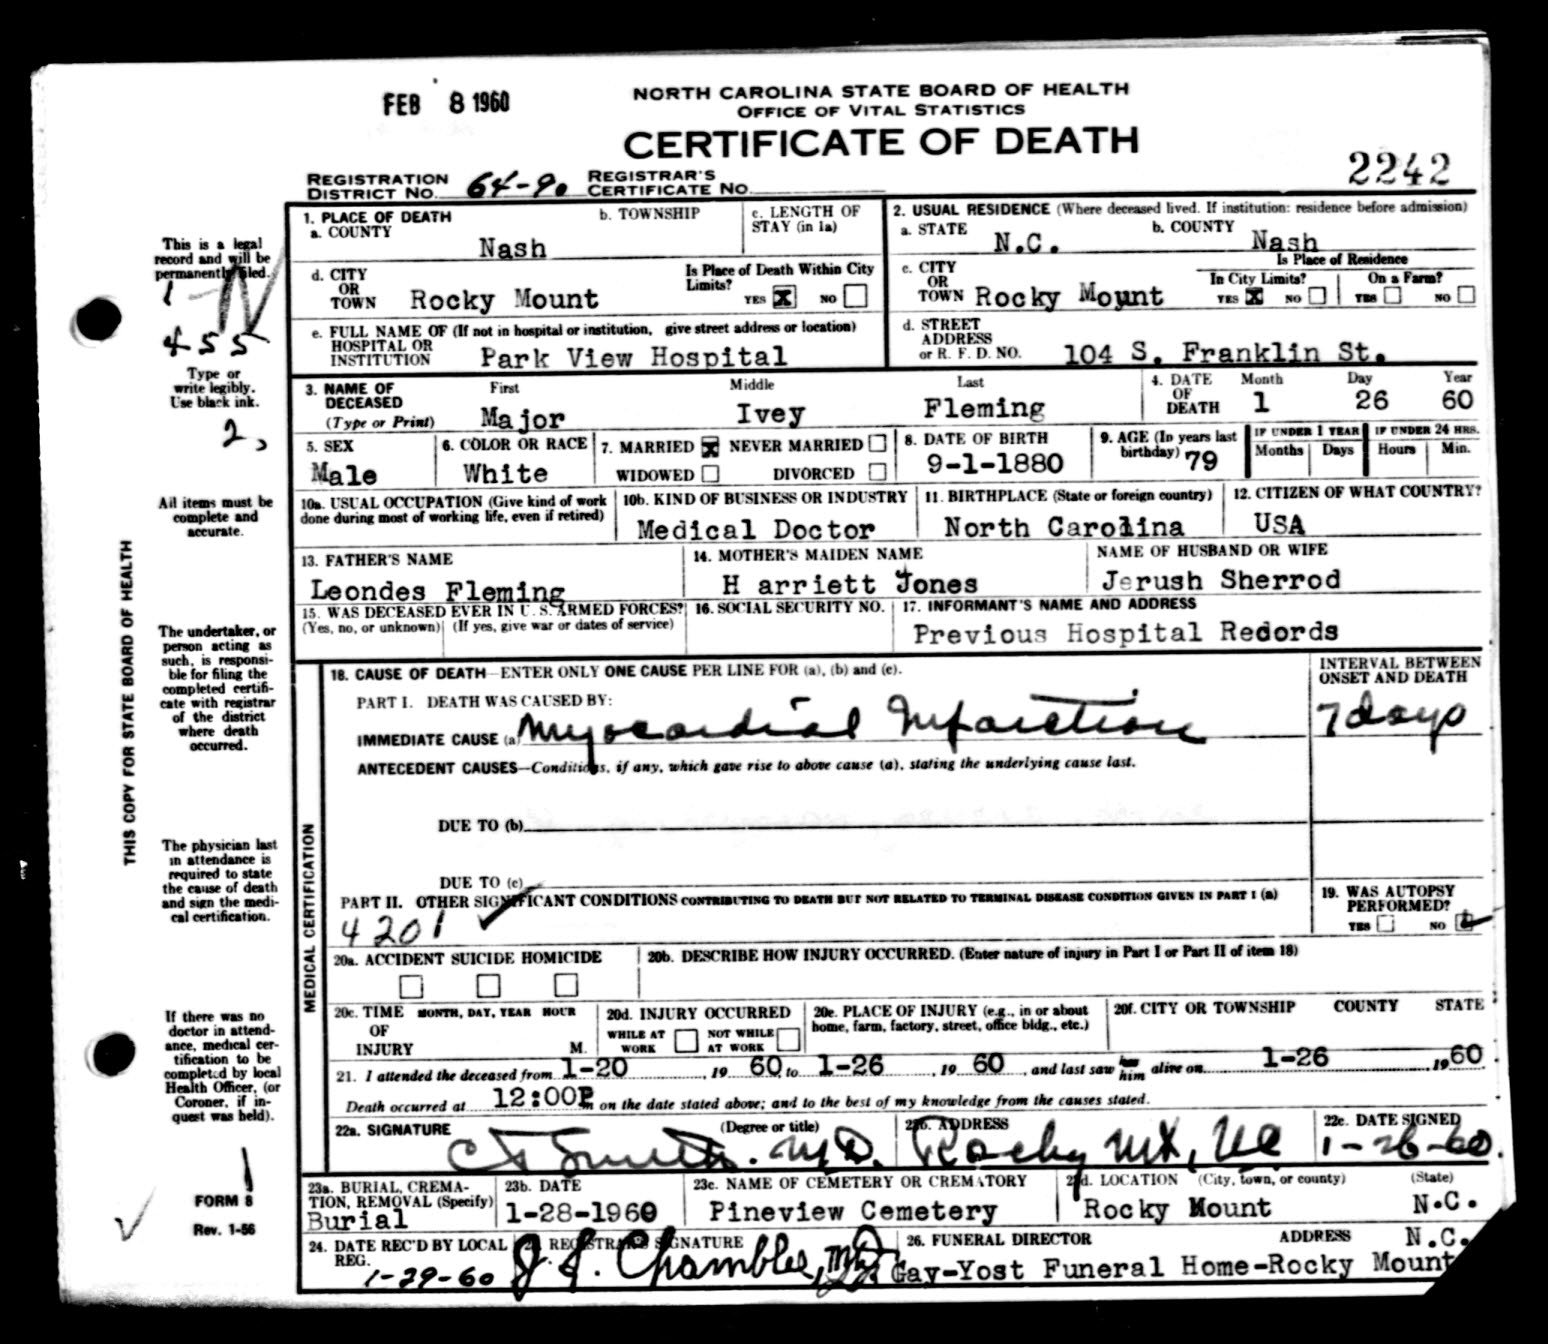 FEB 8 1960
NORTH CAROLINA STATE BOARD OF HEALTH
OFFICE OF VITAL STATISTICS
CERTIFICATE OF DEATH
2242
REGISTRATION DISTRICT NO. 64-90 REGISTRAR'S CERTIFICATE NO.
This is a legal record and will be permanently filed.
1 - N
455
Type or write legibly. Use black ink.
2,
All items must be complete and accurate.
THIS COPY FOR STATE BOARD OF HEALTH
The undertaker, or person acting as such, is responsible for filing the completed certificate with registrar of the district where death occurred.
The physician last in attendance is required to state the cause of death and sign the medical certification.
If there was no doctor in attendance, medical certification to be completed by local Health Officer, (or Coroner, if inquest was held).
FORM 8
Rev. 1-56
1. PLACE OF DEATH
a. COUNTY Nash
b. TOWNSHIP
c. LENGTH OF STAY (in 1a)
2. USUAL RESIDENCE (Where deceased lived. If institution: residence before admission)
a. STATE N.C.
b. COUNTY Nash
d. CITY OR TOWN Rocky Mount
Is Place of Death Within City Limits? YES X NO
c. CITY OR TOWN Rocky Mount
Is Place of Residence
In City Limits? YES X NO
On a Farm? YES NO
e. FULL NAME OF (If not in hospital or institution, give street address or location) HOSPITAL OR INSTITUTION Park View Hospital
d. STREET ADDRESS or R. F. D. NO. 104 S. Franklin St.
3. NAME OF DECEASED (Type or Print)
First Major
Middle Ivey
Last Fleming
4. DATE OF DEATH
Month 1 Day 26 Year 60
5. SEX Male
6. COLOR OR RACE White
7. MARRIED X NEVER MARRIED
WIDOWED DIVORCED
8. DATE OF BIRTH 9-1-1880
9. AGE (In years last birthday) 79
IF UNDER 1 YEAR Months Days
IF UNDER 24 HRS. Hours Min.
10a. USUAL OCCUPATION (Give kind of work done during most of working life, even if retired)
10b. KIND OF BUSINESS OR INDUSTRY Medical Doctor
11. BIRTHPLACE (State or foreign country) North Carolina
12. CITIZEN OF WHAT COUNTRY? USA
13. FATHER'S NAME Leondes Fleming
14. MOTHER'S MAIDEN NAME H arriett Jones
NAME OF HUSBAND OR WIFE Jerush Sherrod
15. WAS DECEASED EVER IN U. S. ARMED FORCES? (Yes, no, or unknown) (If yes, give war or dates of service)
16. SOCIAL SECURITY NO.
17. INFORMANT'S NAME AND ADDRESS Previous Hospital Redords
MEDICAL CERTIFICATION
18. CAUSE OF DEATH—ENTER ONLY ONE CAUSE PER LINE FOR (a), (b) and (c).
INTERVAL BETWEEN ONSET AND DEATH
PART I. DEATH WAS CAUSED BY:
IMMEDIATE CAUSE (a) Myocardial Infarction 7 days
ANTECEDENT CAUSES—Conditions, if any, which gave rise to above cause (a), stating the underlying cause last.
DUE TO (b)
DUE TO (c)
PART II. OTHER SIGNIFICANT CONDITIONS CONTRIBUTING TO DEATH BUT NOT RELATED TO TERMINAL DISEASE CONDITION GIVEN IN PART I (a)
4201
19. WAS AUTOPSY PERFORMED? YES NO
20a. ACCIDENT SUICIDE HOMICIDE
20b. DESCRIBE HOW INJURY OCCURRED. (Enter nature of injury in Part I or Part II of item 18)
20c. TIME OF INJURY MONTH, DAY, YEAR HOUR M.
20d. INJURY OCCURRED WHILE AT WORK NOT WHILE AT WORK
20e. PLACE OF INJURY (e.g., in or about home, farm, factory, street, office bldg., etc.)
20f. CITY OR TOWNSHIP COUNTY STATE
21. I attended the deceased from 1-20, 19 60 to 1-26, 19 60, and last saw her him alive on 1-26 1960.
Death occurred at 12:00P m on the date stated above; and to the best of my knowledge from the causes stated.
22a. SIGNATURE (Degree or title) C T Smith. M.D.
22b. ADDRESS Rocky Mt, NC
22c. DATE SIGNED 1-26-60.
23a. BURIAL, CREMATION, REMOVAL (Specify) Burial
23b. DATE 1-28-1960
23c. NAME OF CEMETERY OR CREMATORY Pineview Cemetery
23d. LOCATION (City, town, or county) (State) Rocky Mount N.C.
24. DATE REC'D BY LOCAL REG. 1-29-60
25. REGISTRAR'S SIGNATURE J. J. Chamblee, MD
26. FUNERAL DIRECTOR ADDRESS Gay-Yost Funeral Home-Rocky Mount N.C.